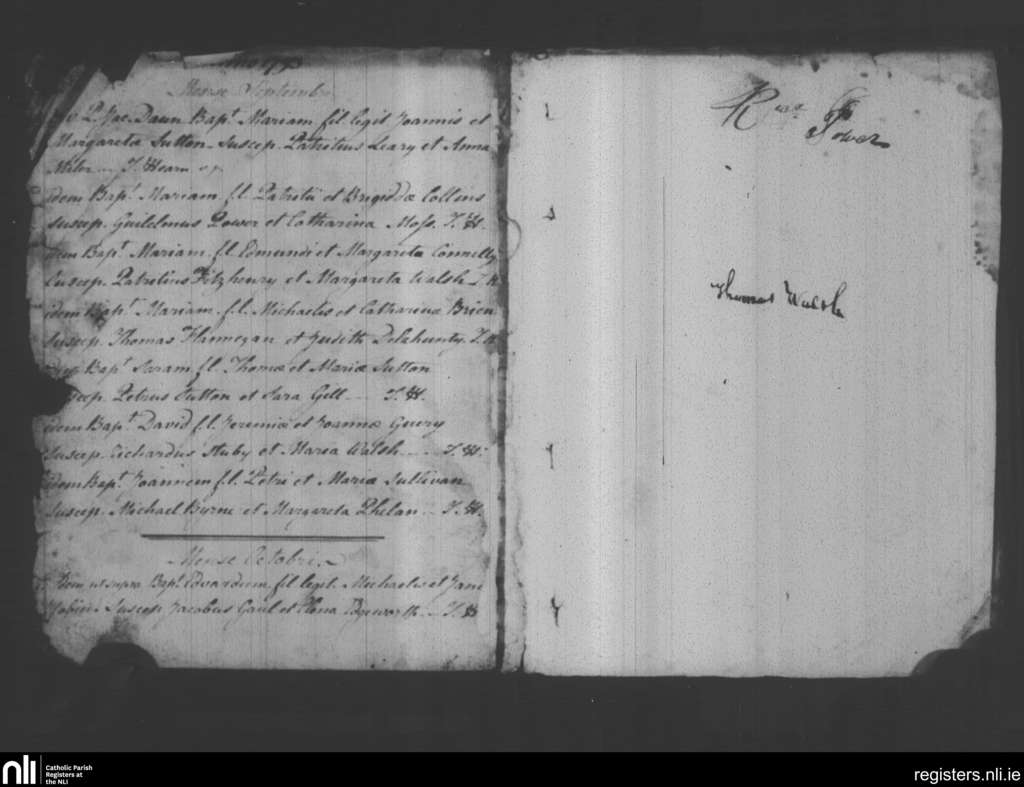 Mense Septembr
Jac. Daun Bapt. Mariam fil legit Joannis et
Margareta Sutton. Suscep. Patritius Leary et Anna
T. Hearn
idem Bapt. Mariam f.l. Patritii et Brigiddæ Collins
Suscep. Guilelmus Power et Catharina Moss. T.H.
idem Bapt. Mariam f.l. Edmundi et Margareta Connelly
Suscep. Patritius Fitzhenry et Margareta Walsh T.H
idem Bapt. Mariam f.l. Michaelis et Catharinæ Brien
Suscep. Thomas Flannegan et Judith Delahunty T.H
Bapt. Saram f.l. Thomæ et Mariæ Sutton
Suscep. Petrus Sutton et Sara Gell T.H.
idem Bapt. David f.l. Jeremiæ et Joannæ Guery
Suscep. Richardus Stuby et Maria Walsh T.H.
idem Bapt. Joannem f.l. Petri et Mariæ Sullivan
Suscep. Michael Byrne et Margareta Phelan T.H.
Mense Octobris
Idem ut supra Bapt. Edvardum fil legit. Michaelis et
Tobin. Suscep. Jacobus Gaul et Elena Edgeworth T.H
Power
Thomas Walsh
nli
Catholic Parish
Registers at
the NLI
registers.nli.ie